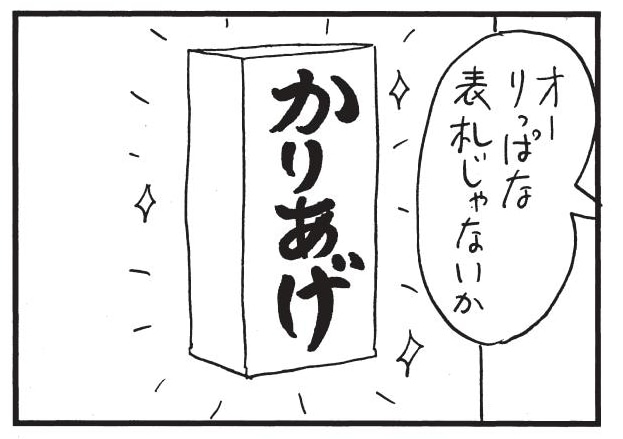 オー
りっぱな
表札じゃないか
かりあげ